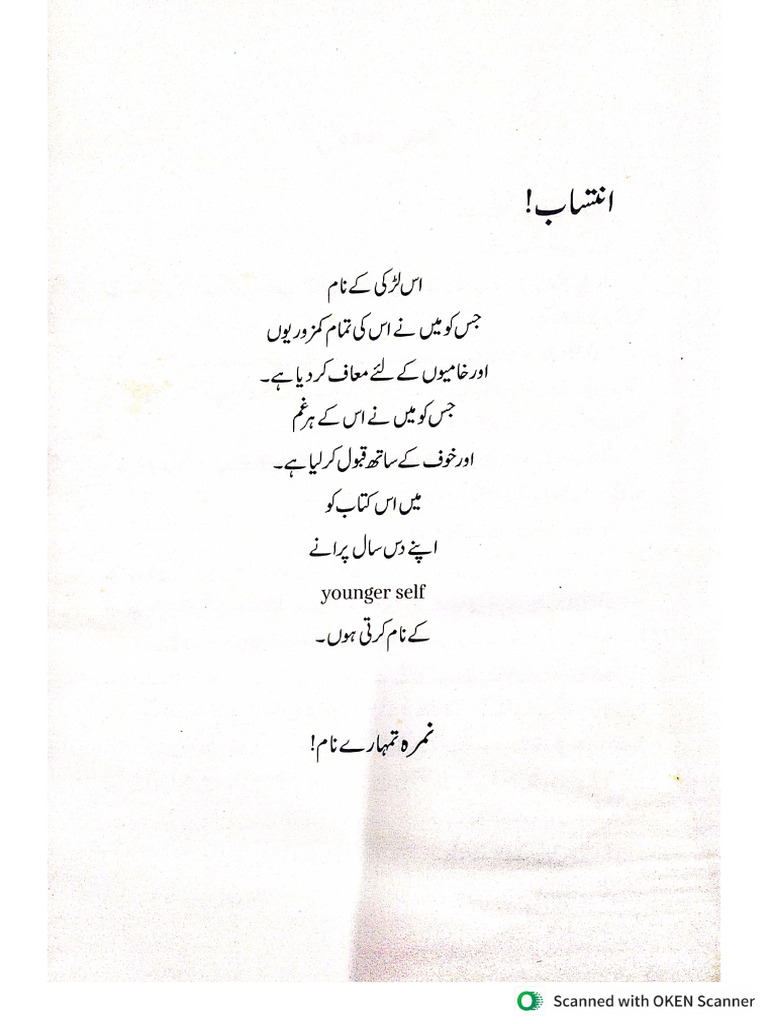 انتساب!
اس لڑکی کے نام
جس کو میں نے اس کی تمام کمزوریوں
اور خامیوں کے لئے معاف کر دیا ہے۔
جس کو میں نے اس کے ہر غم
اور خوف کے ساتھ قبول کر لیا ہے۔
میں اس کتاب کو
اپنے دس سال پرانے
younger self
کے نام کرتی ہوں۔
نمرہ تمہارے نام!
Scanned with OKEN Scanner